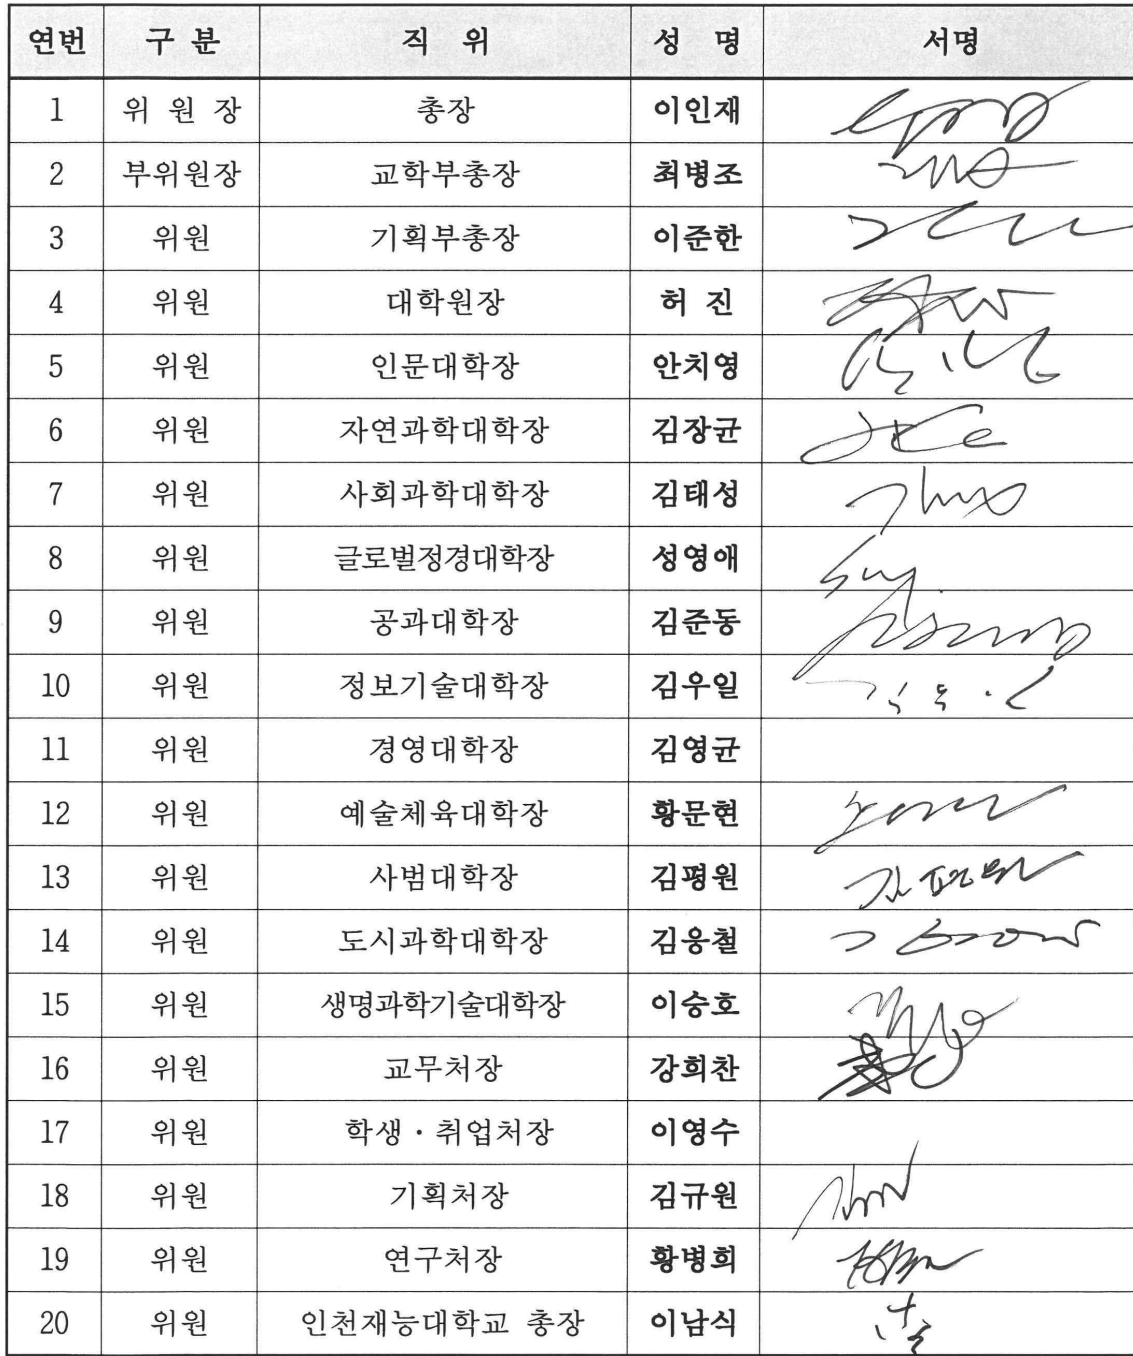 연번 구 분 직 위 성 명 서명
1 위 원 장 총장 이인재
2 부위원장 교학부총장 최병조
3 위원 기획부총장 이준한
4 위원 대학원장 허 진
5 위원 인문대학장 안치영
6 위원 자연과학대학장 김장균
7 위원 사회과학대학장 김태성
8 위원 글로벌정경대학장 성영애
9 위원 공과대학장 김준동
10 위원 정보기술대학장 김우일
11 위원 경영대학장 김영균
12 위원 예술체육대학장 황문현
13 위원 사범대학장 김평원
14 위원 도시과학대학장 김응철
15 위원 생명과학기술대학장 이승호
16 위원 교무처장 강희찬
17 위원 학생·취업처장 이영수
18 위원 기획처장 김규원
19 위원 연구처장 황병희
20 위원 인천재능대학교 총장 이남식